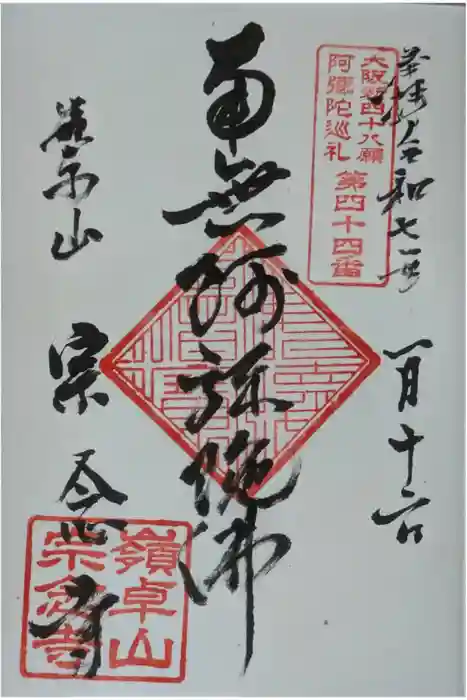 奉拝 令和七年
一月十六日
大阪新四十八願
阿彌陀巡礼
第四十四番
南無阿弥陀佛
嶺卓山
宗念寺
嶺卓山
宗念寺